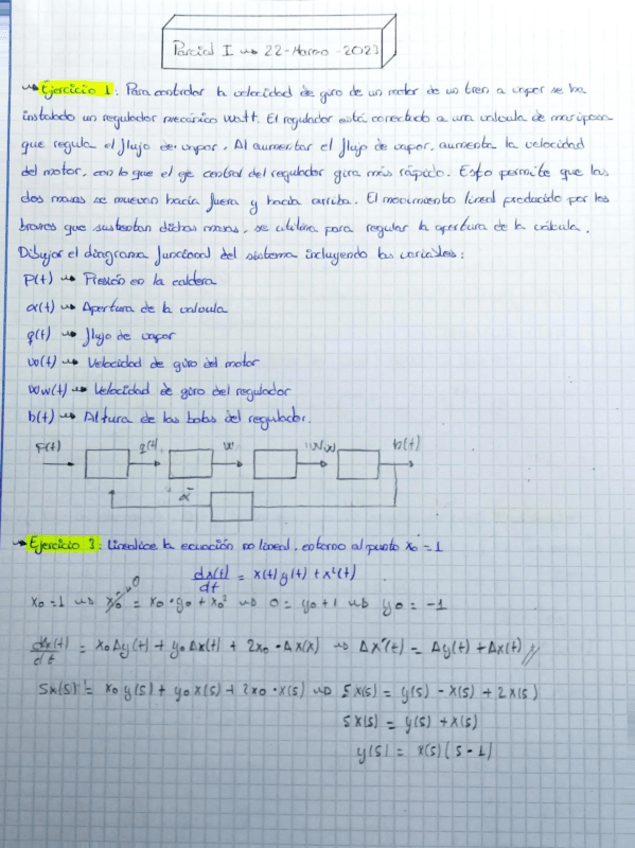 Parcial I ⇝ 22-Marzo-2023
⇝ Ejercicio 1: Para controlar la velocidad de giro de un motor de un tren a vapor se ha
instalado un regulador mecánico Watt. El regulador está conectado a una valcula de mariposa
que regula el flujo de vapor. Al aumentar el flujo de vapor, aumenta la velocidad
del motor, con lo que el eje central del regulador gira más rápido. Esto permite que las
dos masas se muevan hacia fuera y hacia arriba. El movimiento lineal producido por los
brazos que sustentan dichas masas, se utiliza para regular la apertura de la válcula.
Dibujar el diagrama funcional del sistema incluyendo las variables:
P(t) ⇝ Presión en la caldera
α(t) ⇝ Apertura de la valcula
q(t) ⇝ flujo de vapor
w(t) ⇝ Velocidad de giro del motor
Ww(t) ⇝ Velocidad de giro del regulador
h(t) ⇝ Altura de las bolas del regulador.
P(t) q(t) w Ww h(t)
α
⇝ Ejercicio 3: Linealice la ecuación no lineal, entorno al punto x0 = 1
dx(t)/dt = x(t)y(t) + x²(t)
x0 = 1 ⇝ ẋ0 = x0 · y0 + x0² ⇝ 0 = y0 + 1 ⇝ y0 = -1
0
dx(t)/dt = x0 Δy(t) + y0 Δx(t) + 2x0 · Δx(x) ⇝ Δx'(t) = Δy(t) + Δx(t) //
sx(s) = x0 y(s) + y0 x(s) + 2x0 · x(s) ⇝ sx(s) = y(s) - x(s) + 2x(s)
sx(s) = y(s) + x(s)
y(s) = x(s)(s - 1)